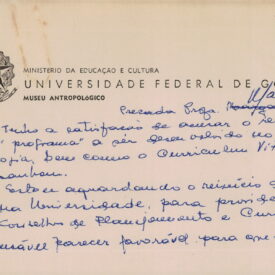 MINISTÉRIO DA EDUCAÇÃO E CULTURA
UNIVERSIDADE FEDERAL DE G
MUSEU ANTROPOLÓGICO
Prezada Profa.
Tenho a satisfação de acusar o
"programa" a ser desenvolvido no
ogia, bem como o Curriculum Vit
também.
Estou aguardando o reinício d
na Universidade, para
Conselho de Planejamento e Cur
parecer favorável, para que